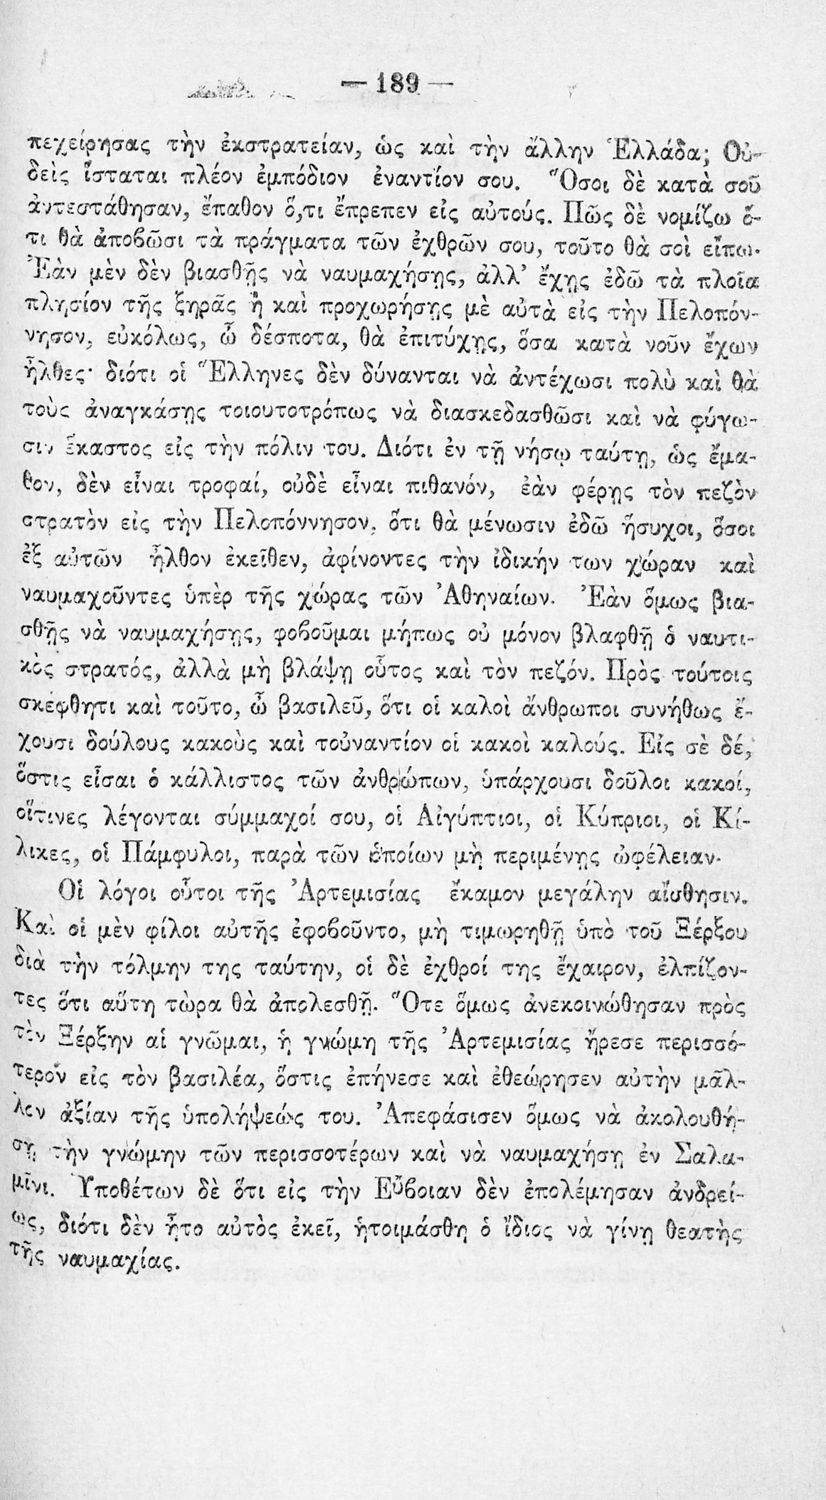 — 189 —
πεχείρησας τὴν ἐκστρατείαν, ὡς καὶ τὴν ἄλλην Ἑλλάδα; Οὐ-
δεὶς ἵσταται πλέον ἐμπόδιον ἐναντίον σου. Ὅσοι δὲ κατὰ σοῦ
ἀντεστάθησαν, ἔπαθον ὅ,τι ἔπρεπεν εἰς αὐτούς. Πῶς δὲ νομίζω ὅ-
τι θὰ ἀποβῶσι τὰ πράγματα τῶν ἐχθρῶν σου, τοῦτο θὰ σοὶ εἴπω.
Ἐὰν μὲν δὲν βιασθῇς νὰ ναυμαχήσῃς, ἀλλ' ἔχῃς ἐδῶ τὰ πλοῖα
πλησίον τῆς ξηρᾶς ἢ καὶ προχωρήσῃς μὲ αὐτὰ εἰς τὴν Πελοπόν-
νησον, εὐκόλως, ὦ δέσποτα, θὰ ἐπιτύχῃς, ὅσα κατὰ νοῦν ἔχων
ἦλθες· διότι οἱ Ἕλληνες δὲν δύνανται νὰ ἀντέχωσι πολὺ καὶ θὰ
τοὺς ἀναγκάσῃς τοιουτοτρόπως νὰ διασκεδασθῶσι καὶ νὰ φύγω-
σιν ἕκαστος εἰς τὴν πόλιν του. Διότι ἐν τῇ νήσῳ ταύτῃ, ὡς ἔμα-
θον, δὲν εἶναι τροφαί, οὐδὲ εἶναι πιθανόν, ἐὰν φέρῃς τὸν πεζὸν
στρατὸν εἰς τὴν Πελοπόννησον, ὅτι θὰ μένωσιν ἐδῶ ἥσυχοι, ὅσοι
ἐξ αὐτῶν ἦλθον ἐκεῖθεν, ἀφίνοντες τὴν ἰδικήν των χώραν καὶ
ναυμαχοῦντες ὑπὲρ τῆς χώρας τῶν Ἀθηναίων. Ἐὰν ὅμως βια-
σθῇς νὰ ναυμαχήσῃς, φοβοῦμαι μήπως οὐ μόνον βλαφθῇ ὁ ναυτι-
κὸς στρατός, ἀλλὰ μὴ βλάψῃ οὗτος καὶ τὸν πεζόν. Πρὸς τούτοις
σκέφθητι καὶ τοῦτο, ὦ βασιλεῦ, ὅτι οἱ καλοὶ ἄνθρωποι συνήθως ἔ-
χουσι δούλους κακοὺς καὶ τοὐναντίον οἱ κακοὶ καλούς. Εἰς σὲ δέ,
ὅστις εἶσαι ὁ κάλλιστος τῶν ἀνθρώπων, ὑπάρχουσι δοῦλοι κακοί,
οἵτινες λέγονται σύμμαχοί σου, οἱ Αἰγύπτιοι, οἱ Κύπριοι, οἱ Κί-
λικες, οἱ Πάμφυλοι, παρὰ τῶν ὁποίων μὴ περιμένῃς ὠφέλειαν.
Οἱ λόγοι οὗτοι τῆς Ἀρτεμισίας ἔκαμον μεγάλην αἴσθησιν.
Καὶ οἱ μὲν φίλοι αὐτῆς ἐφοβοῦντο, μὴ τιμωρηθῇ ὑπὸ τοῦ Ξέρξου
διὰ τὴν τόλμην της ταύτην, οἱ δὲ ἐχθροί της ἔχαιρον, ἐλπίζον-
τες ὅτι αὕτη τώρα θὰ ἀπολεσθῇ. Ὅτε ὅμως ἀνεκοινώθησαν πρὸς
τὸν Ξέρξην αἱ γνῶμαι, ἡ γνώμη τῆς Ἀρτεμισίας ἤρεσε περισσό-
τερον εἰς τὸν βασιλέα, ὅστις ἐπῄνεσε καὶ ἐθεώρησεν αὐτὴν μᾶλ-
λον ἀξίαν τῆς ὑπολήψεώς του. Ἀπεφάσισεν ὅμως νὰ ἀκολουθή-
σῃ τὴν γνώμην τῶν περισσοτέρων καὶ νὰ ναυμαχήσῃ ἐν Σαλα-
μῖνι. Ὑποθέτων δὲ ὅτι εἰς τὴν Εὔβοιαν δὲν ἐπολέμησαν ἀνδρεί-
ως, διότι δὲν ἦτο αὐτὸς ἐκεῖ, ἡτοιμάσθη ὁ ἴδιος νὰ γίνῃ θεατὴς
τῆς ναυμαχίας.